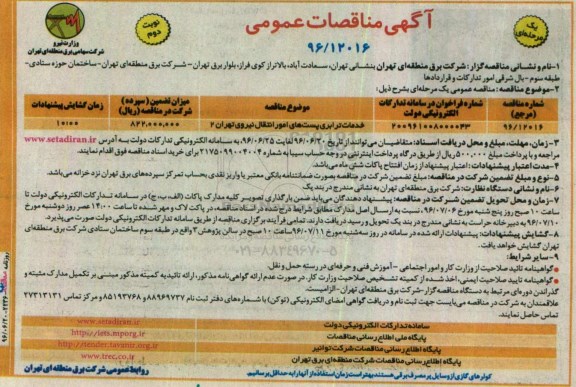 آگهی مناقصات عمومی
۹۶/۱۲۰۱۶
یک مرحله‌ای
نوبت دوم
وزارت نیرو
شرکت سهامی برق منطقه‌ای تهران
۱-نام و نشانی مناقصه گزار: شرکت برق منطقه‌ای تهران بنشانی تهران، سعادت آباد، بالاتر از کوی فراز، بلوار برق تهران - شرکت برق منطقه‌ای تهران - ساختمان حوزه ستادی-
طبقه سوم - بال شرقی امور تدارکات و قراردادها
۲-موضوع مناقصه: مناقصه عمومی یک مرحله‌ای بشرح ذیل:
شماره مناقصه (مرجع)
شماره فراخوان در سامانه تدارکات الکترونیکی دولت
موضوع مناقصه
میزان تضمین (سپرده) شرکت در مناقصه (ریال)
زمان گشایش پیشنهادات
۹۶/۱۲۰۱۶
۲۰۰۹۶۱۰۰۸۰۰۰۰۴۳
خدمات ترابری پست‌های امور انتقال نیروی تهران ۲
۸۲۲,۰۰۰,۰۰۰
۱۰:۰۰
۳- زمان، مهلت، مبلغ و محل دریافت اسناد: متقاضیان می‌توانند از تاریخ ۹۶/۰۶/۲۰ لغایت ۹۶/۰۶/۲۵ به سامانه الکترونیکی تدارکات دولت به آدرس www.setadiran.ir
مراجعه و با پرداخت مبلغ ۵۰۰,۰۰۰ ریال از طریق درگاه پرداخت اینترنتی در وجه حساب سیبا به شماره ۲۱۷۵۰۹۹۰۰۴۰۰۴ برای خرید اسناد مناقصه فوق اقدام نمایند.
۴-مدت اعتبار پیشنهادات: اعتبار پیشنهاد از زمان افتتاح پاکات شش ماه می‌باشد.
۵-نوع و مبلغ تضمین شرکت در مناقصه: مبلغ تضمین شرکت در مناقصه بصورت ضمانتنامه بانکی معتبر یا واریز نقدی بحساب تمرکز سپرده‌های برق تهران نزد خزانه می‌باشد.
۶-نام و نشانی دستگاه نظارت: شرکت برق منطقه‌ای تهران به نشانی مندرج در بند یک
۷-زمان و محل تحویل تضمین شرکت در مناقصه: پیشنهاد دهندگان می‌باید ضمن بارگذاری تصویر کلیه مدارک پاکات (الف، ب، ج) در سامانه تدارکات الکترونیکی دولت تا
ساعت ۱۰ صبح روز پنج شنبه مورخ ۹۶/۰۷/۰۶، نسبت به ارسال اصل مدارک مطابق شرایط درج شده در اسناد مناقصه، در پاکت لاک و مهر شده تا ساعت ۱۴:۰۰ عصر روز دوشنبه مورخ
۹۶/۰۷/۱۰ به دبیرخانه حراست به نشانی مندرج در بند یک تحویل و رسید دریافت دارند. تمامی فرآیند برگزاری مناقصه از طریق سامانه تدارکات الکترونیکی دولت صورت می‌پذیرد.
۸-گشایش پیشنهادات: پیشنهادات ارائه شده در سامانه در روز سه‌شنبه مورخ ۹۶/۰۷/۱۱ ساعت ۱۰ صبح در سالن پژوهش ۲ واقع در طبقه سوم ساختمان ستادی شرکت برق منطقه‌ای
تهران گشایش خواهد یافت.
۹-سایر شرایط:
•گواهینامه تائید صلاحیت از وزارت کار و امور اجتماعی - آموزش فنی و حرفه‌ای در رسته حمل و نقل.
•گواهینامه تایید صلاحیت ایمنی، اخذ شده از کمیته تشخیص صلاحیت وزارت کار. در صورت عدم ارائه گواهی‌نامه مذکور، ارائه تائیدیه کمیته مذکور مبنی بر تکمیل مدارک مثبته و
گذراندن دوره‌ای مرتبط به دستگاه مناقصه گزار-شرکت برق منطقه‌ای تهران- الزامیست.
علاقمندان به شرکت در مناقصه می‌بایست جهت ثبت نام و دریافت گواهی امضای الکترونیکی (توکن) با شماره‌های دفتر ثبت نام ۸۸۹۶۹۷۳۷ و ۸۵۱۹۳۷۶۸ و مرکز تماس ۲۷۳۱۳۱۳۱
تماس حاصل نمایند.
سامانه تدارکات الکترونیکی دولت www.setadiran.ir
پایگاه ملی اطلاع رسانی مناقصات http://iets.mporg.ir
پایگاه اطلاع رسانی مناقصات شرکت توانیر http://tender.tavanir.org.ir
پایگاه اطلاع رسانی مناقصات شرکت منطقه‌ای برق تهران www.trec.co.ir
کولرهای گازی از وسایل پر مصرف برقی هستند بهتر است زمان استفاده از آنها را به حداقل برسانیم.
روابط عمومی شرکت برق منطقه‌ای تهران